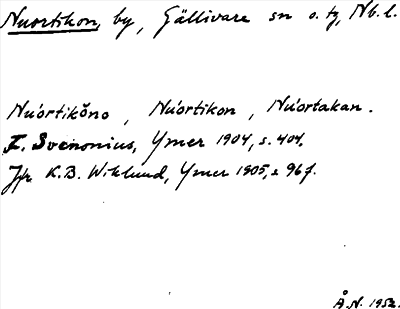 Nuortikon, by, Gällivare sn o. tg, Nb. l.
Nuórtikŏno, Nuórtikon, Nuórtakan.
F. Svenonius, Ymer 1904, s. 404,
Jfr K.B. Wiklund, Ymer 1905, s 96 f.
Å.N. 1952.